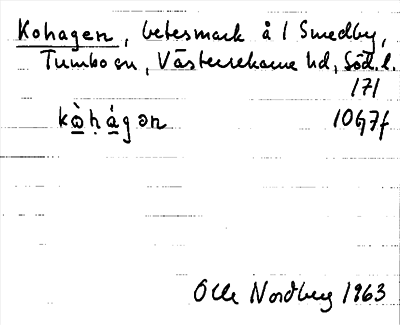 Kohagen, betesmark å 1 Smedby,
Tumbo sn, Västerrekarne hd, Söd. l.
171
1067f
Olle Nordberg 1963